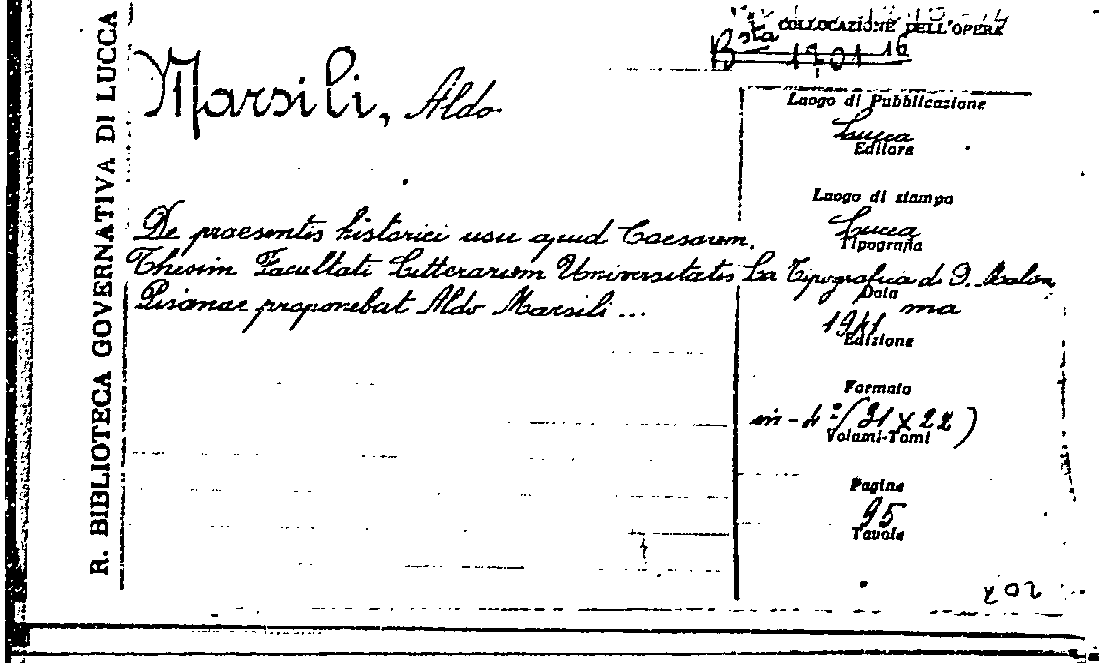 R. BIBLIOTECA GOVERNATIVA DI LUCCA
COLLOCAZIONE DELL'OPERA
Bsta 1201 16
Marsili, Aldo
De praesentis historici usu apud Caesarem.
Thesim Facultati Litterarum Universitatis
Pisanae proponebat Aldo Marsili ...
Luogo di Pubblicazione
Lucca
Editore
Luogo di stampa
Lucca
Tipografia
La Tipografica di
Data
1941
Edizione
Formato
in-4º (31 x 22)
Volumi-Tomi
Pagine
95
Tavole
202